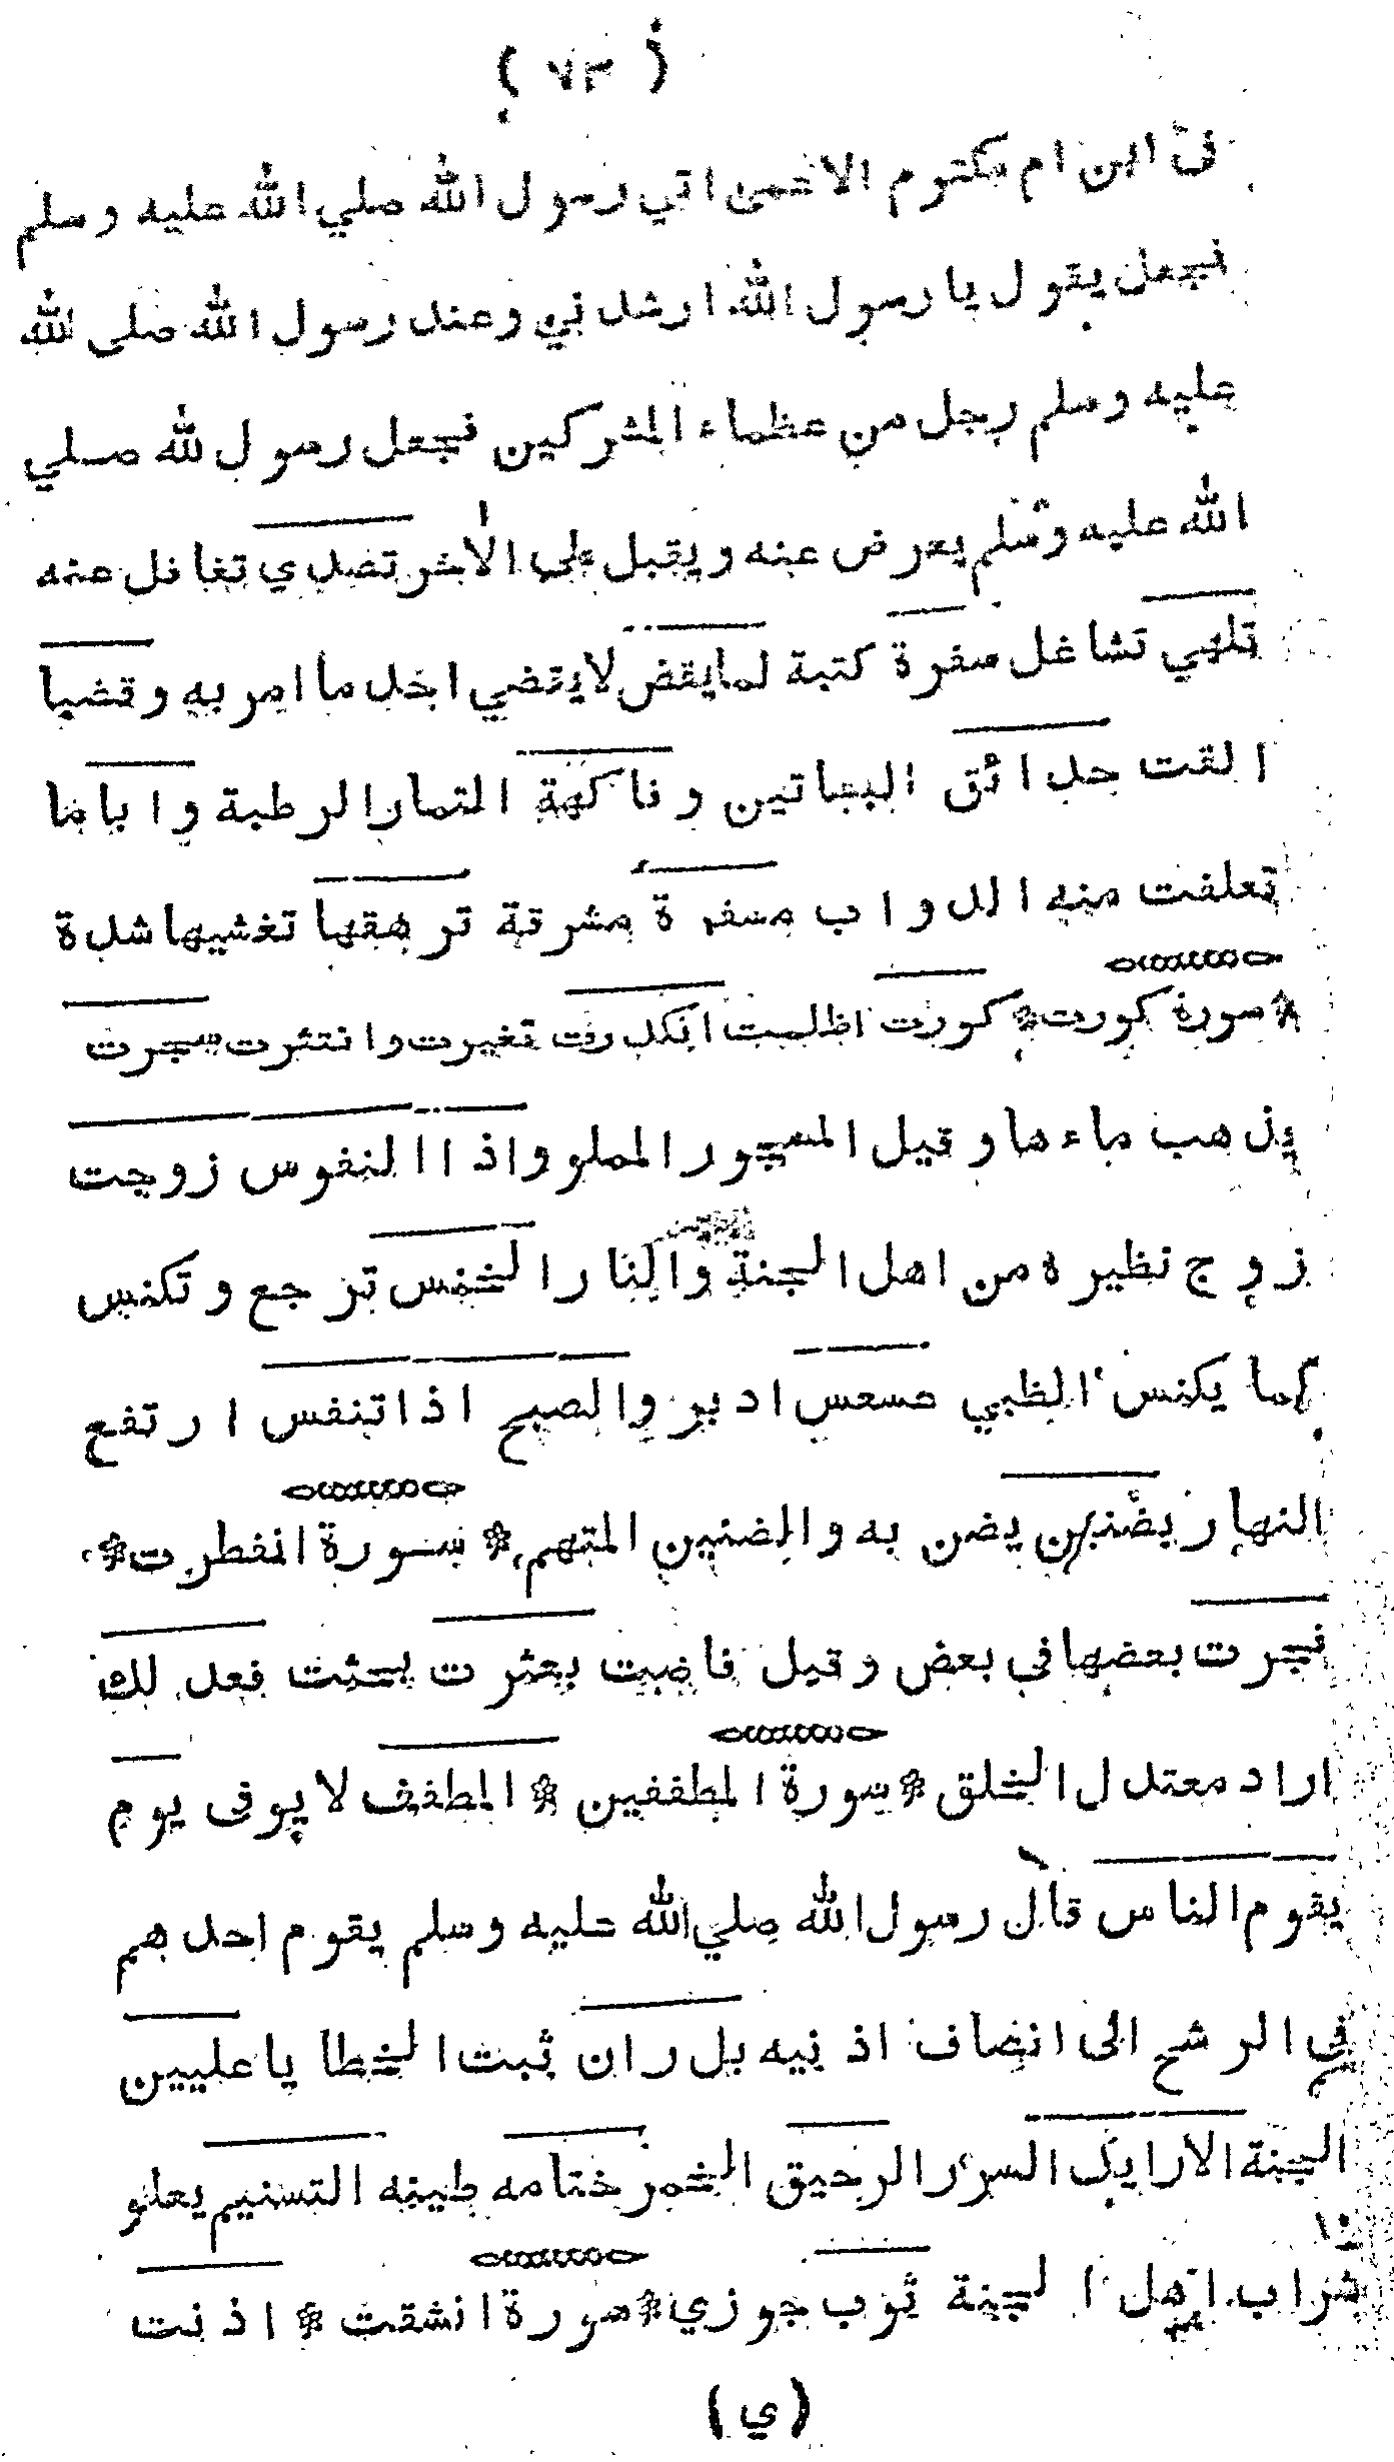 ( ٧٣ )
فى ابن ام مكتوم الاعمى اتي رسول الله صلي الله عليه وسلم
فجعل يقول يا رسول الله ارشدني وعند رسول الله صلى لله
عليه وسلم رجل من عظماء المشركين فجعل رسول لله صلي
الله عليه وسلم يعرض عنه ويقبل على الاخر تصدي تغافل عنه
تلهي تشاغل سفرة كتبة لمايقض لايقضي احد ما امر به وقضبا
القت حدائق البساتين وفاكهة الثمار الرطبة وابا ما
تعلفت منه الدواب مسفرة مشرقة ترهقها تغشيها شدة
* سورة كورت * كورت اظلمت انكدرت تغيرت وانتثرت سجرت
يذهب ماءها وقيل المسجور المملو واذا النفوس زوجت
زوج نظيره من اهل الجنة والنار الخنس ترجع وتكنس
كما يكنس الظبي عسعس ادبر والصبح اذا تنفس ارتفع
النهار بضنين يضن به والضنين المتهم * سورة انفطرت *
فجرت بعضها في بعض وقيل فاضت بعثرت بحثت فعدلك
اراد معتدل الخلق * سورة المطففين * المطفف لا يوفى يوم
يقوم الناس قال رسول الله صلي الله عليه وسلم يقوم احدهم
في الرشح الى انصاف اذنيه بل ران ثبت الخطايا عليين
الجنة الارايك السرر الرحيق الخمر ختامه طينه التسنيم يعلو
شراب اهل الجنة ثوب جوزي * سورة انشقت * اذنت
(ي)